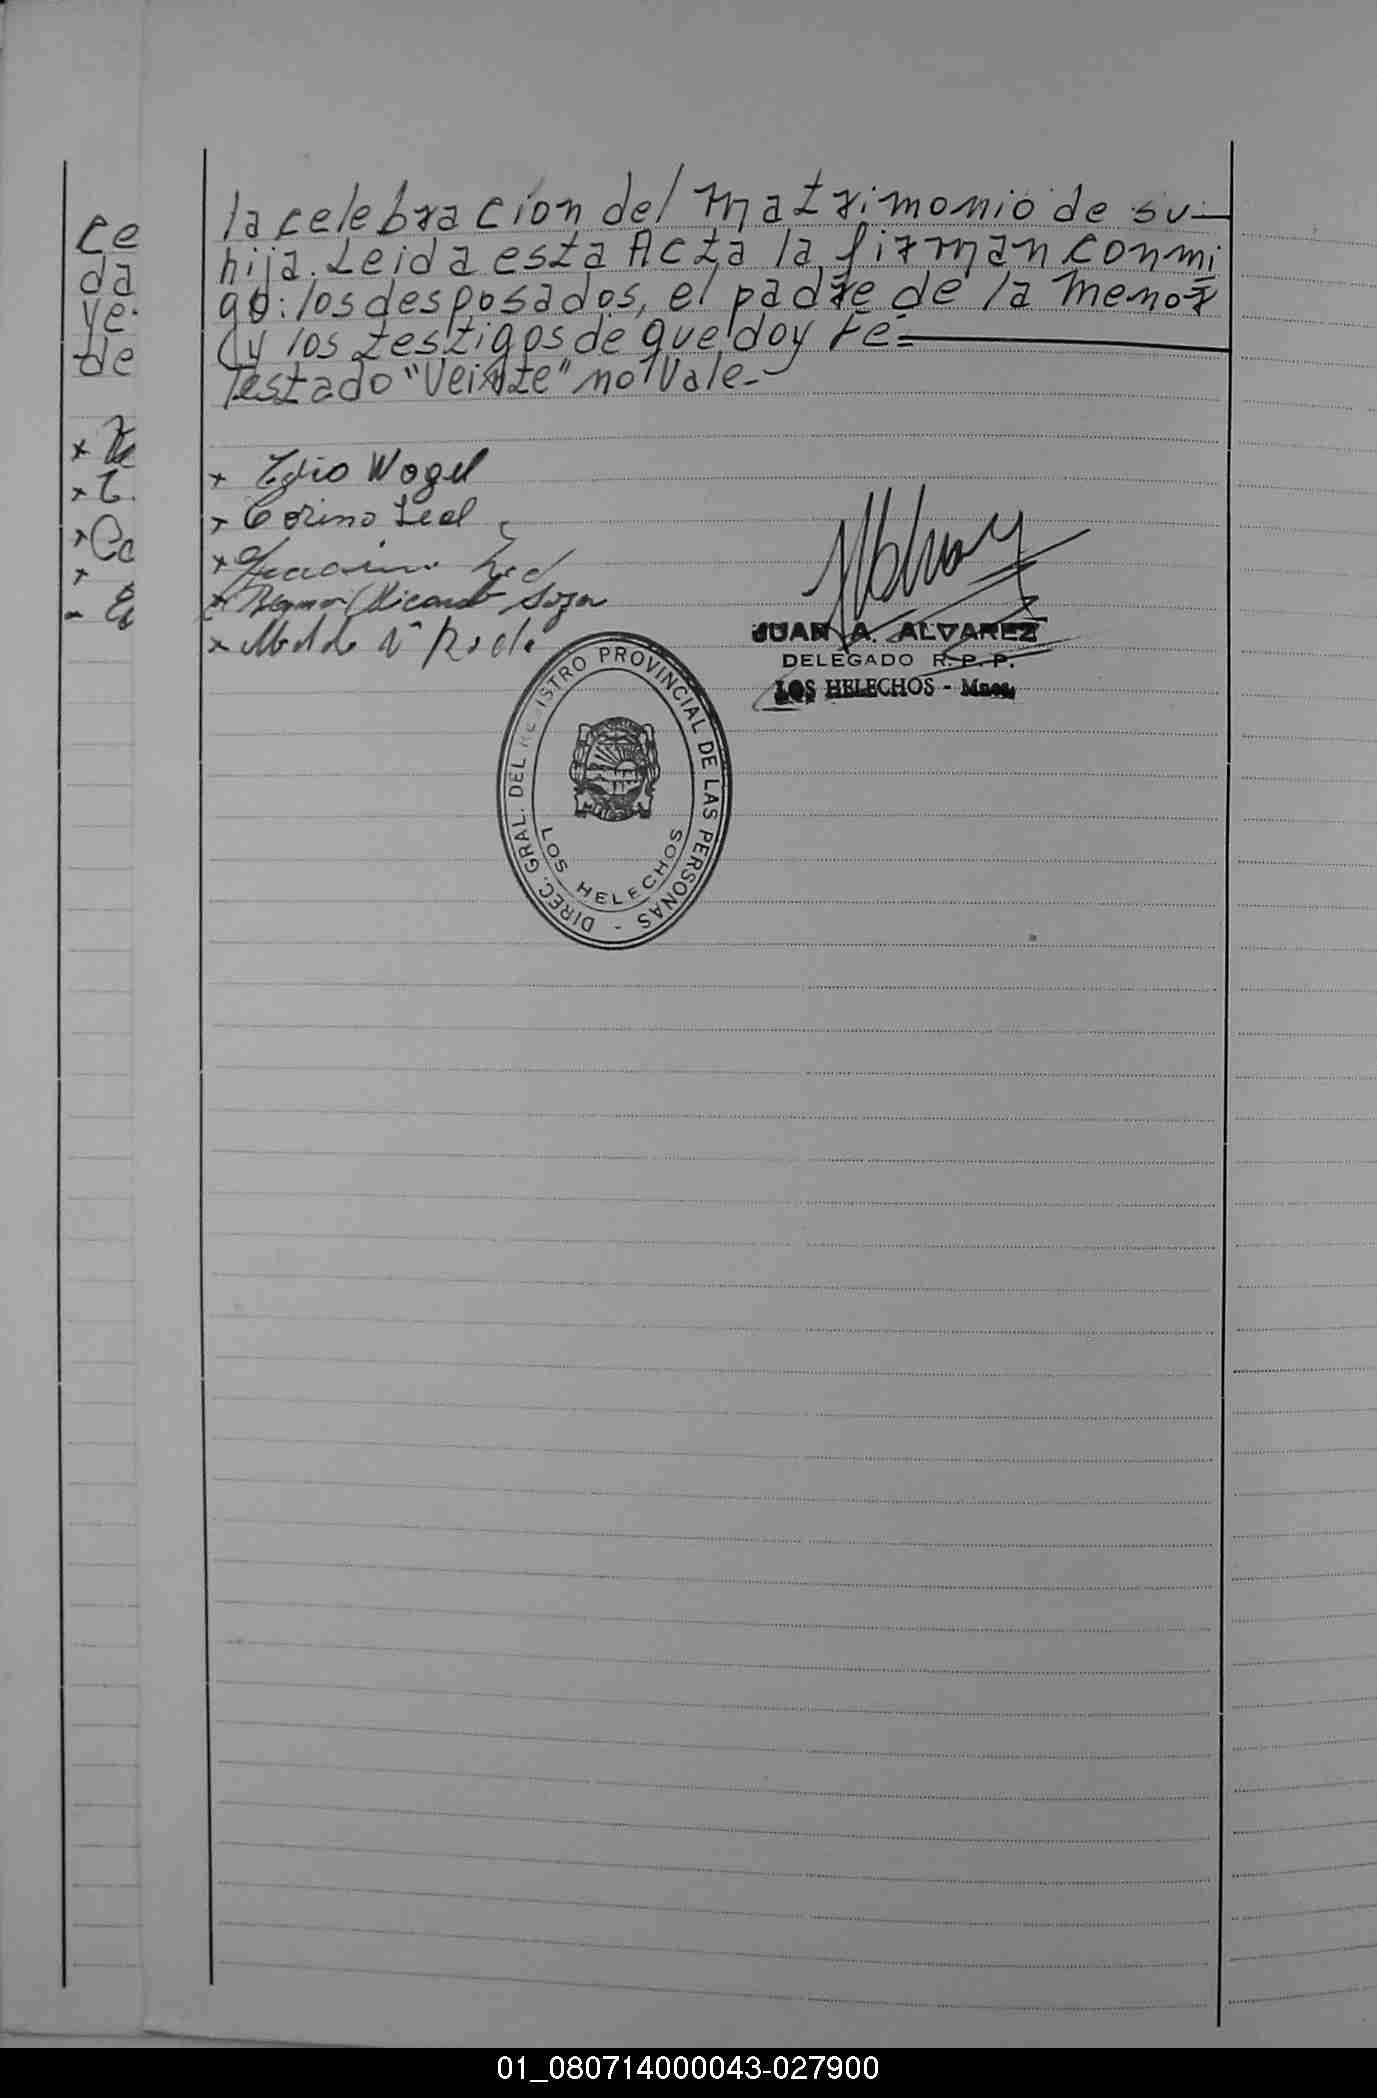 la celebracion del Matrimonio de su—
hija. Leida esta Acta la firman conmi
go: los desposados, el padre de la menor
y los testigos de que doy Fe=
Testado "Veinte" no Vale-
ce
da
ye
de
x Wogel
x Corino Leal
x
x Ricardo
x
JUAN A. ALVAREZ
DELEGADO R. P. P.
LOS HELECHOS - Mnes.
DIREC. GRAL. DEL REGISTRO PROVINCIAL DE LAS PERSONAS -
LOS HELECHOS
01_080714000043-027900